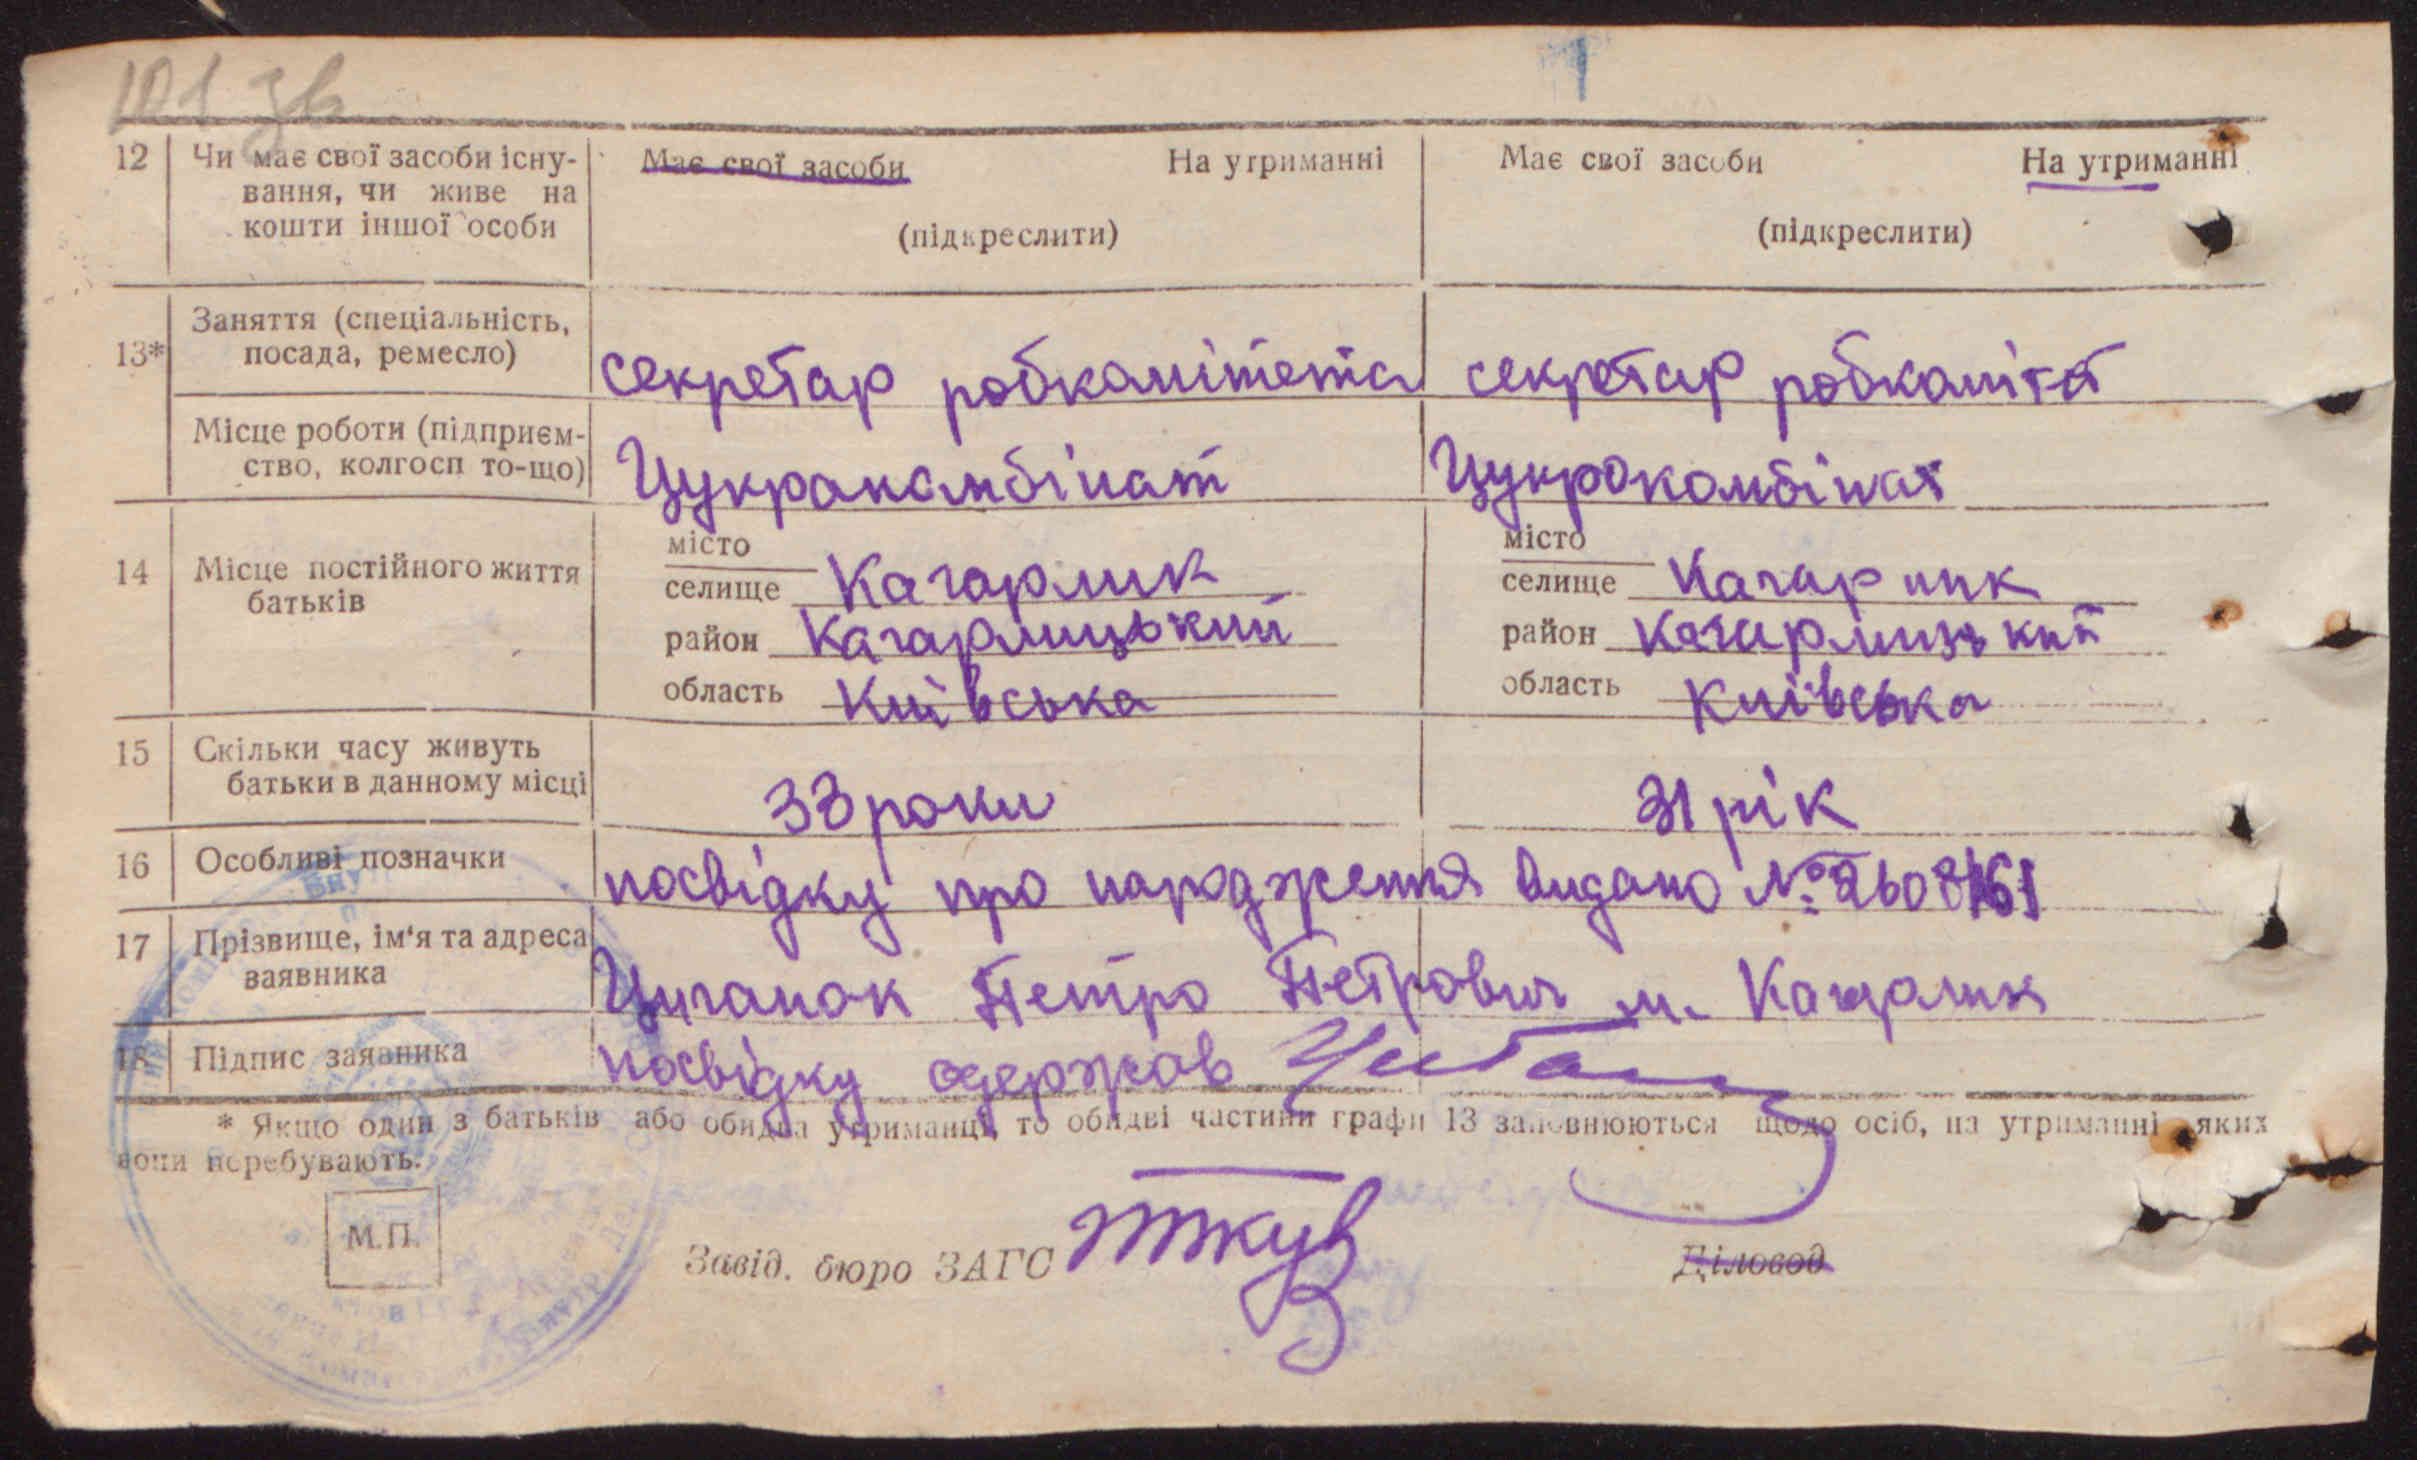 101 зв
1
12 Чи має свої засоби існу- Має свої засоби На утриманні Має свої засоби На утриманні
вання, чи живе на
кошти іншої особи (підкреслити) (підкреслити)
Заняття (спеціальність,
13* посада, ремесло) секретар робкомітета секретар робкоміта
Місце роботи (підприєм-
ство, колгосп то-що) Цукракамбінат Цукрокомбінат
місто місто
14 Місце постійного життя селище Кагарлик селище Кагарлик
батьків район Кагарлицький район Кагарлицький
область Київська область Київська
15 Скільки часу живуть
батьки в данному місці 33 роки 31 рік
16 Особливі позначки посвідку про народження видано №
17 Прізвище, ім'я та адреса
заявника Циганок Петро Петрович м. Кагарлик
18 Підпис заявника посвідку одержав
* Якщо один з батьків або обидва утриманці, то обидві частини графи 13 заповнюються щодо осіб, на утриманні яких
вони перебувають.
М.П.
Завід. бюро ЗАГС Діловод